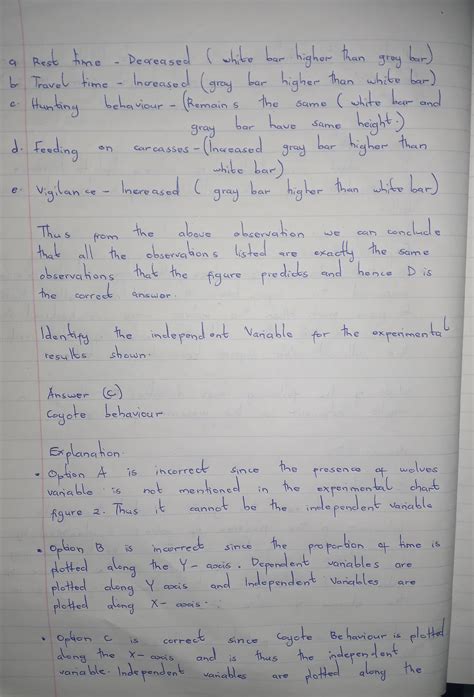 a Rest time - Decreased ( white bar higher than grey bar)
b Travel time - Increased (gray bar higher than white bar)
c. Hunting behaviour - (Remains the same ( white bar and
gray bar have same height.)
d. Feeding on carcasses - (Increased gray bar higher than
white bar)
e. Vigilance - Increased ( gray bar higher than white bar)
Thus from the above observation we can conclude
that all the observations listed are exactly the same
observations that the figure predicts and hence D is
the correct answer.
Identify the independent Variable for the experimental
results shown.
Answer (C)
Coyote behaviour
Explanation.
• Option A is incorrect since the presence of wolves
variable is not mentioned in the experimental chart
figure 2. Thus it cannot be the independent variable
• Option B is incorrect since the proportion of time is
plotted along the Y-axis. Dependent variables are
plotted along Y axis and Independent Variables are
plotted along X-axis.
• Option C is correct since Coyote Behaviour is plotted
along the X-axis and is thus the independent
variable. Independent variables are plotted along the